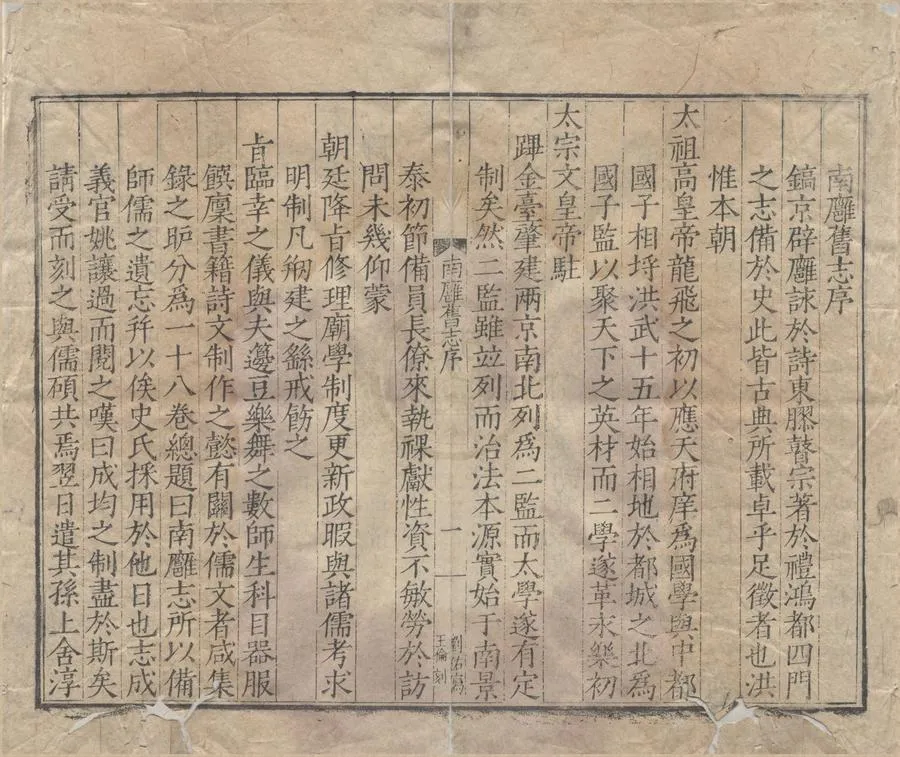 南廱舊志序
鎬京辟廱詠於詩東膠瞽宗著於禮鴻都四門
之志備於史此皆古典所載卓乎足徵者也洪
惟本朝
太祖高皇帝龍飛之初以應天府庠為國學與中都
國子相埒洪武十五年始相地於都城之北為
國子監以聚天下之英材而二學遂革永樂初
太宗文皇帝駐
蹕金臺肇建兩京南北列為二監而太學遂有定
制矣然二監雖竝列而治法本源實始于南景
南廱舊志序
一
劉佑寫
王倫刻
泰初節備員長僚來執祼獻性資不敏勞於訪
問未幾仰蒙
朝廷降㫖修理廟學制度更新政暇與諸儒考求
明制凡剏建之繇戒飭之
㫖臨幸之儀與夫籩豆樂舞之數師生科目器服
饌廩書籍詩文制作之懿有關於儒文者咸集
錄之昈分爲一十八卷總題曰南廱志所以備
師儒之遺忘并以俟史氏採用於他日也志成
義官姚讓過而閱之嘆曰成均之制盡於斯矣
請受而刻之與儒碩共焉翌日遣其孫上舍淳